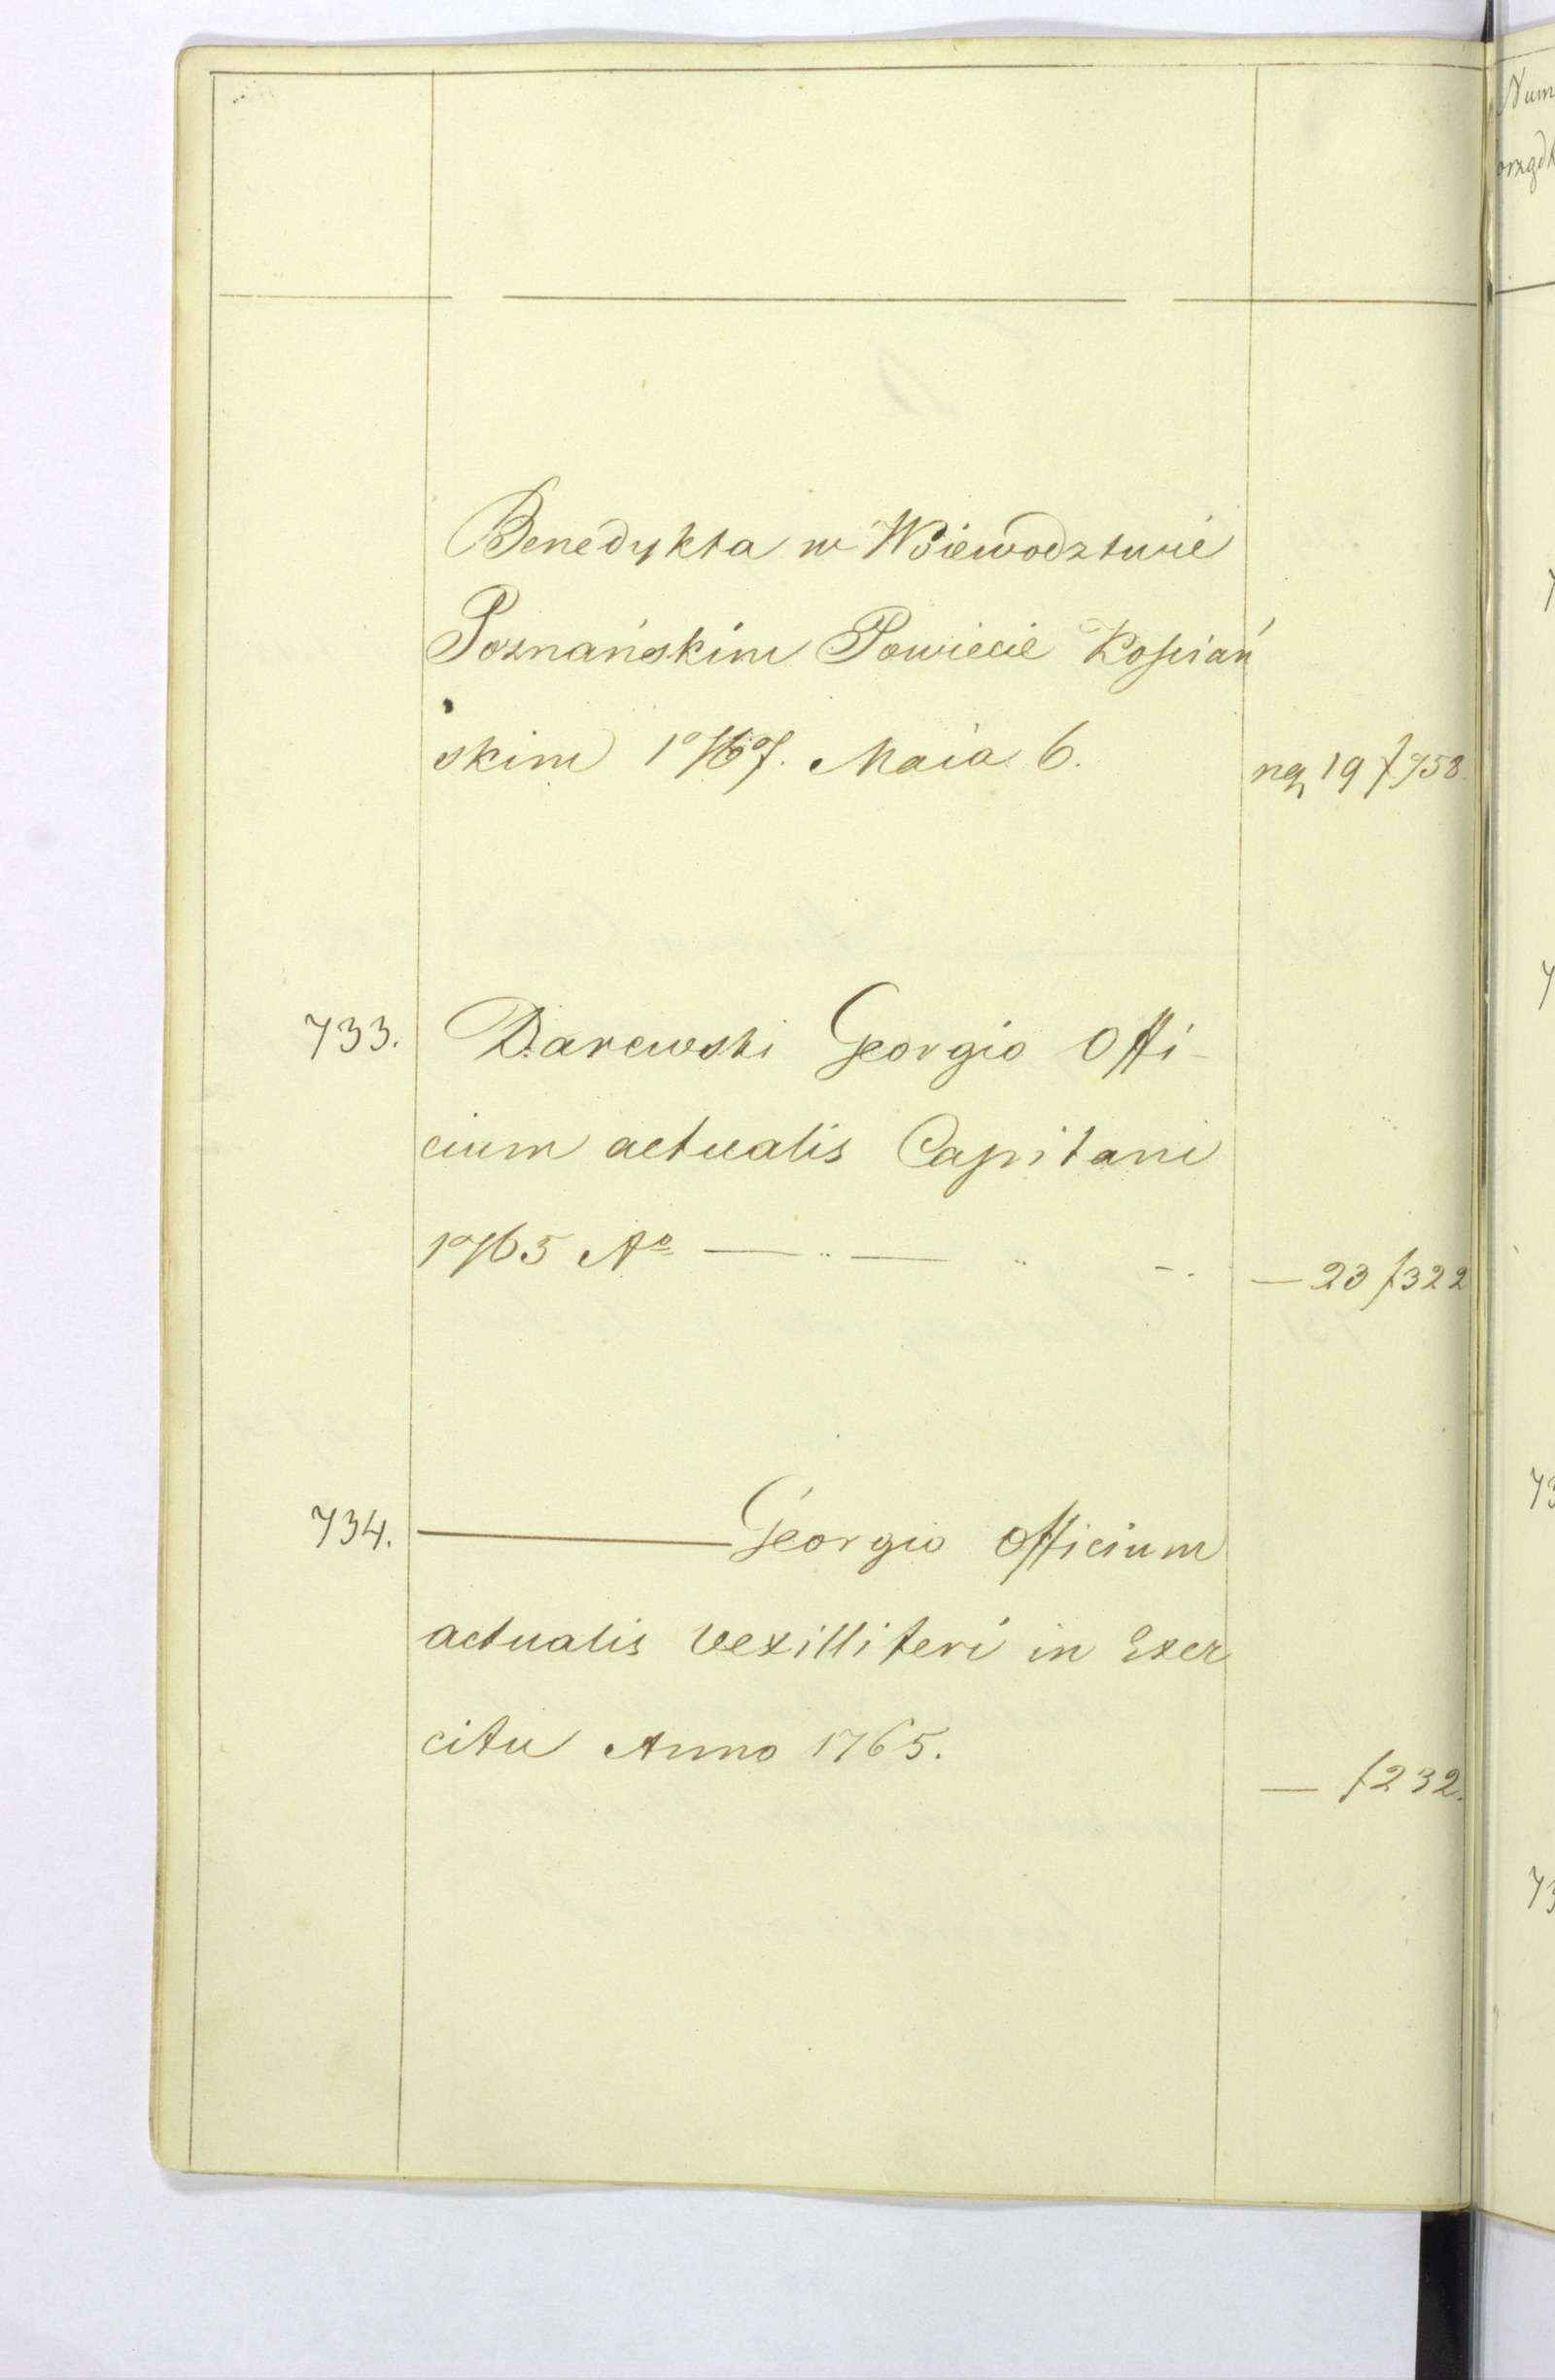 Benedykta w Woiewodztwie
Poznańskim Powiecie Kościań
skim 1767. Maia 6. ną 19 f 758.
733. Darewski Georgio Offi-
cium actualis Capitani
1765 Aº — .. — .. -. — 23 f 322
734. ——— Georgio Officium
actualis Vexilliferi in Exer
citu Anno 1765.
— f 232.
Num